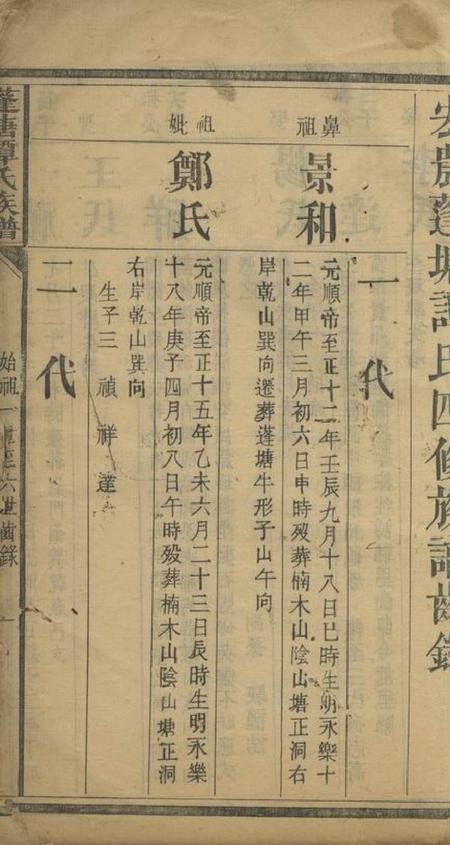 宏農蓬塘譚氏四修族譜齒錄
一代
鼻祖
景和
元順帝至正十二年壬辰九月十八日巳時生明永樂十
二年甲午三月初六日申時歿葬楠木山陰山塘正洞右
岸乾山巽向遷葬蓬塘牛形子山午向
祖妣
鄭氏
元順帝至正十五年乙未六月二十三日辰時生明永樂
十八年庚子四月初八日午時歿葬楠木山陰山塘正洞
右岸乾山巽向
生子三 禎 祥 達
二代
蓬塘譚氏族譜
始祖一世至六世齒錄